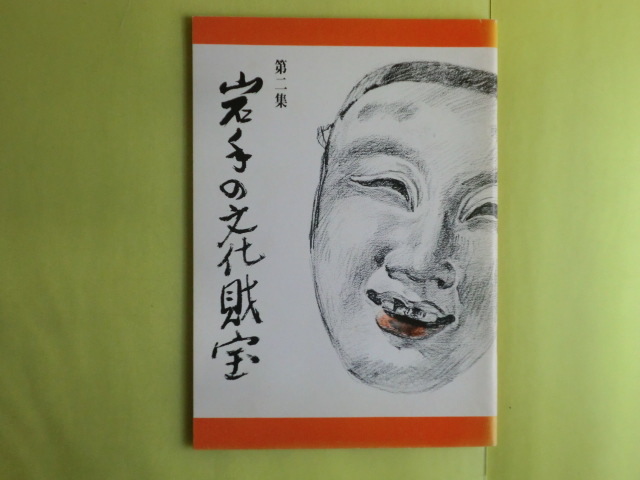 第二集
岩手の文化財宝